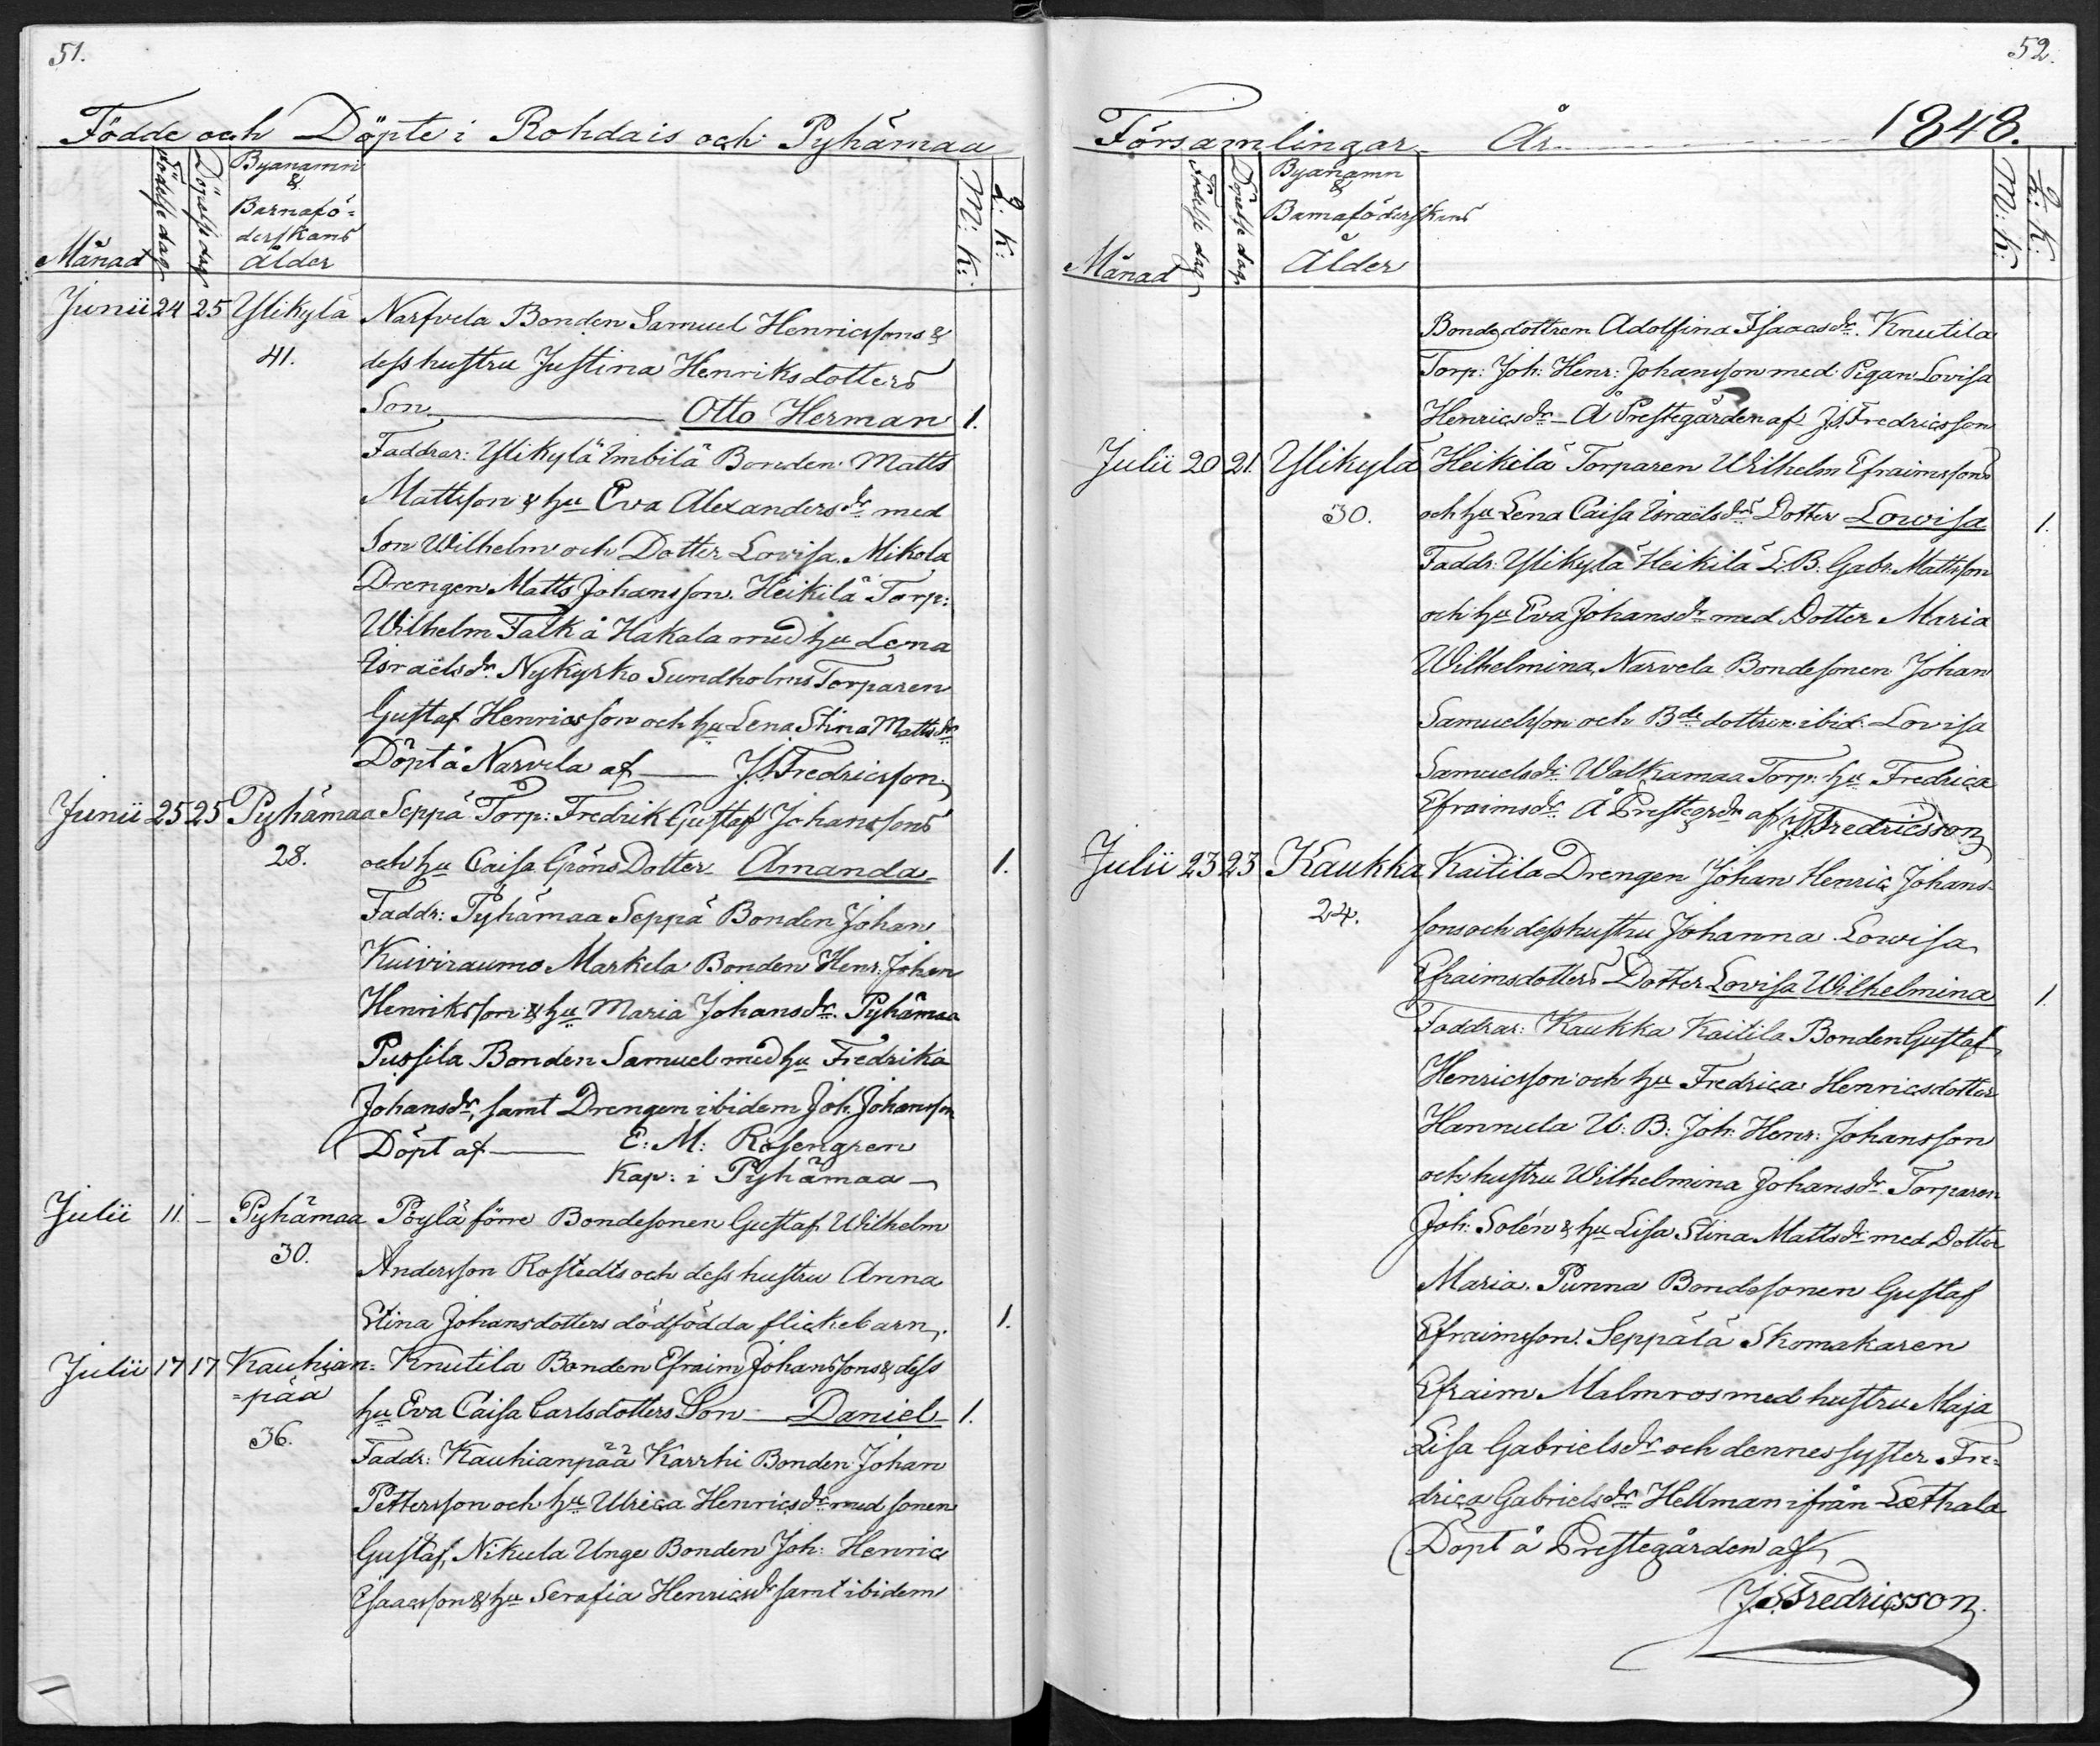 51.
Födde och Döpte i Rohdais och Pyhämaa
Månad
Födelse dag
Döpelse dag
Byanamn
&
Barnafö=
derskans
ålder
M: K:
Q: K:
Junii 24 25 Ylikylä Narfvela Bonden Samuel Henricssons &
41. dess hustru Justina Henriksdotters
Son Otto Herman 1.
Faddrar: Ylikylä Imbilä Bonden Matts
Mattsson & hu Eva Alexandersdr med
Son Wilhelm och Dotter Lovisa. Mikola
Drengen Matts Johansson. Heikilä Torp:
Wilhelm Falk å Hakala med hu Lena
Israelsdr. Nykyrko Sundholms Torparen
Gustaf Henricsson och hu Lena Stina Mattsdr
Döpt å Narvela af J.S.Fredricsson.
Junii 25 25 Pyhämaa Seppä Torp: Fredrik Gustaf Johanssons
28. och hu Caisa Gröns Dotter Amanda 1.
Faddr: Pyhämaa Seppä Bonden Johan
Kuiviraumo Markela Bonden Henr: Johan
Henriksson & hu Maria Johansdr. Pyhämaa
Pussila Bonden Samuel med hu Fredrika
Johansdr, samt Drengen ibidem Joh. Johansson
Döpt af E: M: Rosengren
Kap: i Pyhämaa
Julii 11 - Pyhämaa Pöylä förre Bondesonen Gustaf Wilhelm
30. Andersson Rostedts och dess hustru Anna
Stina Johansdotters dödfödda flickebarn. 1.
Julii 17 17 Kauhian= Knutila Bonden Efraim Johanssons & dess
=pää hu Eva Caisa Carlsdotters Son Daniel 1.
36. Faddr: Kauhianpää Karrhi Bonden Johan
Pettersson och hu Ulrica Henricsdr med sonen
Gustaf, Nikula Unge Bonden Joh: Henric
Isaacsson & hu Serafia Henricsdr samt ibidem
52.
Församlingar År 1848.
Månad
Födelse dag
Döpelse dag
Byanamn
&
Barnaföderskans
Ålder
M: K:
Q: K:
Bondedottren Adolfina Isaacsdr. Knutila
Torp: Joh: Henr: Johansson med Pigan Lovisa
Henricsdr - Å Prestegården af J.S.Fredricsson
Julii 20 21 Ylikylä Heikilä Torparen Wilhelm Efraimssons
30. och hu Lena Caisa Israelsdrs Dotter Lowisa 1.
Faddr: Ylikylä Heikilä L.B. Gabr. Mattsson
och hu Eva Johansdr med Dotter Maria
Wilhelmina, Narvela Bondesonen Johan
Samuelsson och Bde dottren ibid: Lovisa
Samuelsdr. Walkamaa Torp: hu Fredrica
Efraimsdr. Å Prestegrdn af J.S.Fredricsson
Julii 23 23 Kaukka Kaitila Drengen Johan Henric Johans-
24. sons och dess hustru Johanna Lowisa
Efraimsdotters Dotter Lovisa Wilhelmina 1.
Faddrar: Kaukka Kaitila Bonden Gustaf
Henricsson och hu Fredrica Henricsdotter
Hannula U: B: Joh: Henr: Johansson
och hustru Wilhelmina Johansdr. Torparen
Joh: Solén & hu Lisa Stina Mattsdr med Dotter
Maria. Punna Bondesonen Gustaf
Efraimsson. Seppälä Skomakaren
Efraim Malmros med hustru Maja
Lisa Gabrielsdr och dennes syster Fre=
drica Gabrielsdr Hellman ifrån Lethala
Döpt å Prestegården af
J.S.Fredricsson.